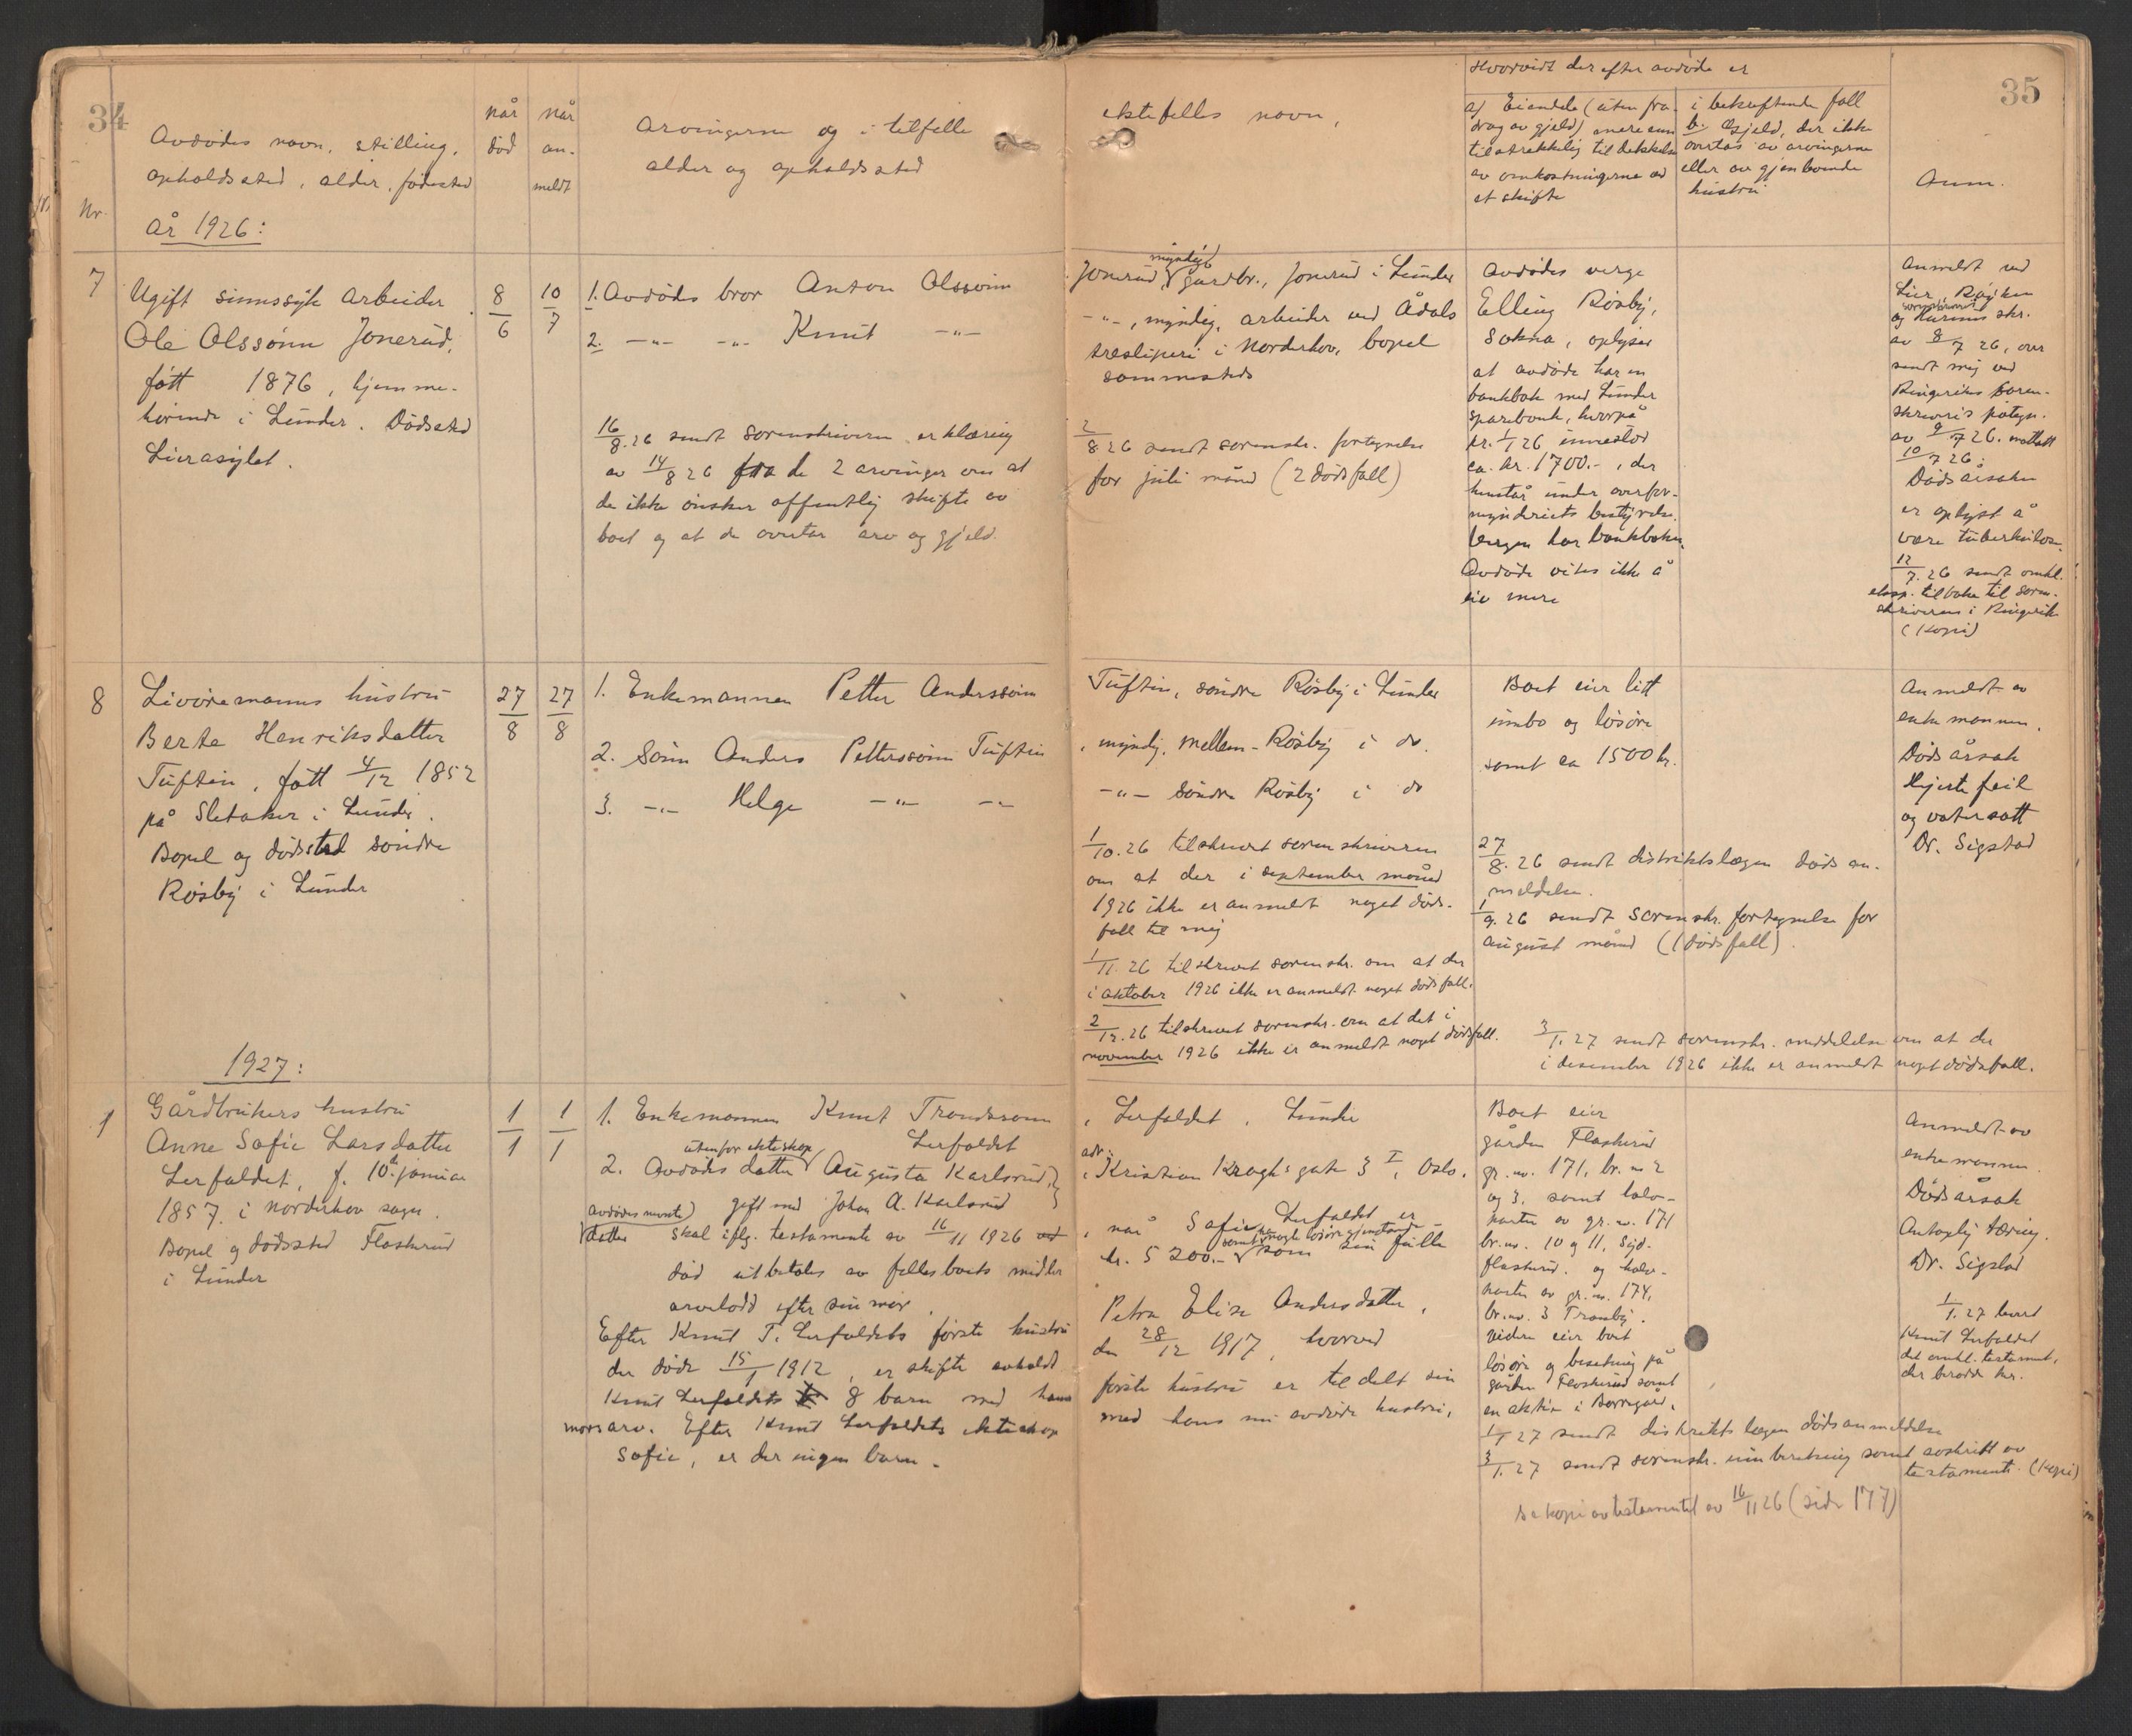 34
Nr.
Avdødes navn, stilling,
opholdssted, alder, fødested
År 1926:
når
død
når
an-
meldt
Arvingerne og i tilfelle
alder og opholdssted
7
Ugift sinnssyk arbeider
Ole Olssønn Jonerud,
født 1876, hjemme-
hørende i Lunder. Dødssted
Lierasylet.
8/6
10/7
1. Avdødes bror Anton Olssønn
2. -"- -"- Knut -"-
16/8.26 sendt sorenskriveren erklæring
av 14/8 26 fra de 2 arvinger om at
de ikke ønsker offentlig skifte av
boet og at de overtar arv og gjeld.
8
Livøremanns hustru
Berte Henriksdatter
Tuftin, født 4/12 1852
på Sletaker i Lunder.
Bopel og dødssted søndre
Røsby i Lunder
27/8
27/8
1. Enkemannen Petter Anderssønn
2. Sønn Anders Petterssønn Tuftin
3. -"- Helge -"- -"-
1927:
1
Gårdbrukers hustru
Anne Sofie Larsdatter
Lerfaldet, f. 10de januar
1857 i Norderhov sogn.
Bopel og dødssted Flaskerud
i Lunder
1/1
1/1
1. Enkemannen Knut Trondssønn
Lerfaldet
utenfor ekteskap
2. Avdødes datter Augusta Karlsrud,
gift med Johan A. Karlsrud
avdødes nevnte
datter skal iflg. testamente av 16/11 1926 ved
død utbetales av fellesboets midler
arvelodd efter sin mor.
Efter Knut T. Lerfaldets første hustru
der døde 15/1 1912, er skifte avholdt
Knut Lerfaldets 8 barn med hans
morsarv. Efter Knut Lerfaldets ekteskap
Sofie, er der ingen barn.
35
ektefelles navn,
Hvorvidt der efter avdøde er
a) Eiendele (uten fra-
drag av gjeld) mere enn
tilstrekkelig til dekkelse
av omkostningerne ved
et skifte
i bekreftende fall
b. Gjeld, der ikke
overtas av arvingerne
eller av gjenlevende
hustru
Anm.
myndig
Jonerud, gardbr., Jonerud i Lunder
-"-, myndig, arbeider ved Ådals
tresliperi i Norderhov, bopel
sammesteds
2/8 26 sendt sorenskr. fortegnelse
for juli måned (2 dødsfall)
Avdødes verge
Elling Røsby,
Sokna, oplyser
at avdøde har en
bankbok med Lunder
Sparebank, hvorpå
pr. 1/1 26 innestod
ca. kr. 1700.-, der
henstår under overfor-
mynderiets bestyrelse.
Vergen har bankboken.
Avdøde vites ikke å
eie mere
Anmeldt ved
Lier, Røyken
og Hurums skr.
av 8/7 26, over
sendt mig ved
Ringerikes soren-
skriveris påtegn.
av 9/7 26. mottatt
10/7 26.
Dødsårsaken
er oplyst å
være tuberkulose.
12/7. 26 sendt omhl.
eksp. tilbake til soren-
skriveren i Ringerike
(Kopi)
Tuftin, søndre Røsby i Lunder
, myndig, mellem-Røsby i do.
-"- søndre Røsby i do
1/10.26 tilskrevet sorenskriveren
om at der i september måned
1926 ikke er anmeldt noget døds-
fall til mig
1/11.26 tilskrevet sorenskr. om at der
i oktober 1926 ikke er anmeldt noget dødsfall.
2/12.26 tilskrevet sorenskr. om at det i
november 1926 ikke er anmeldt noget dødsfall.
Boet eier litt
innbo og løsøre
samt ca 1500 kr.
27/8.26 sendt distriktslægen dødsan-
meldelse.
1/9.26 sendt sorenskr. fortegnelse for
august måned (1 dødsfall).
3/1.27 sendt sorenskr. meddelelse om at der
i desember 1926 ikke er anmeldt noget dødsfall.
Anmeldt av
enkemannen.
Dødsårsak
Hjertefeil
og vatersott
Dr. Sigstad
, Lerfaldet, Lunder
adr.
, Kristian Kroghs gate 3 I, Oslo.
, når Sofie Lerfaldet er
samt nogle løsøregjenstande
kr. 5200.- som sin fulle
Petra Elise Andersdatter,
den 28/12 1917, hvorved
første hustru er tildelt sin
med hans nu avdøde hustru,
Boet eier
gården Flaskerud
gr. no. 171, br. no 2
og 3, samt halv-
parten av gr. no. 171
br. no. 10 og 11, Syd-
flaskerud, og halv-
parten av gr. no. 174,
br. no. 3 Tranby.
Videre eier boet
løsøre og besetning på
gården Flaskerud samt
en aktie i Borregård.
1/1 27 sendt distriktslægen dødsanmeldelse
3/1.27 sendt sorenskr. innberetning samt avskrift av
testamente. (Kopi)
se kopi av testamentet av 16/11 26 (side 177)
Anmeldt av
enkemannen.
Dødsårsak
Antagelig tæring.
Dr. Sigstad
1/1.27 levert
Knut Lerfaldet
det omhl. testament,
der beroede her.